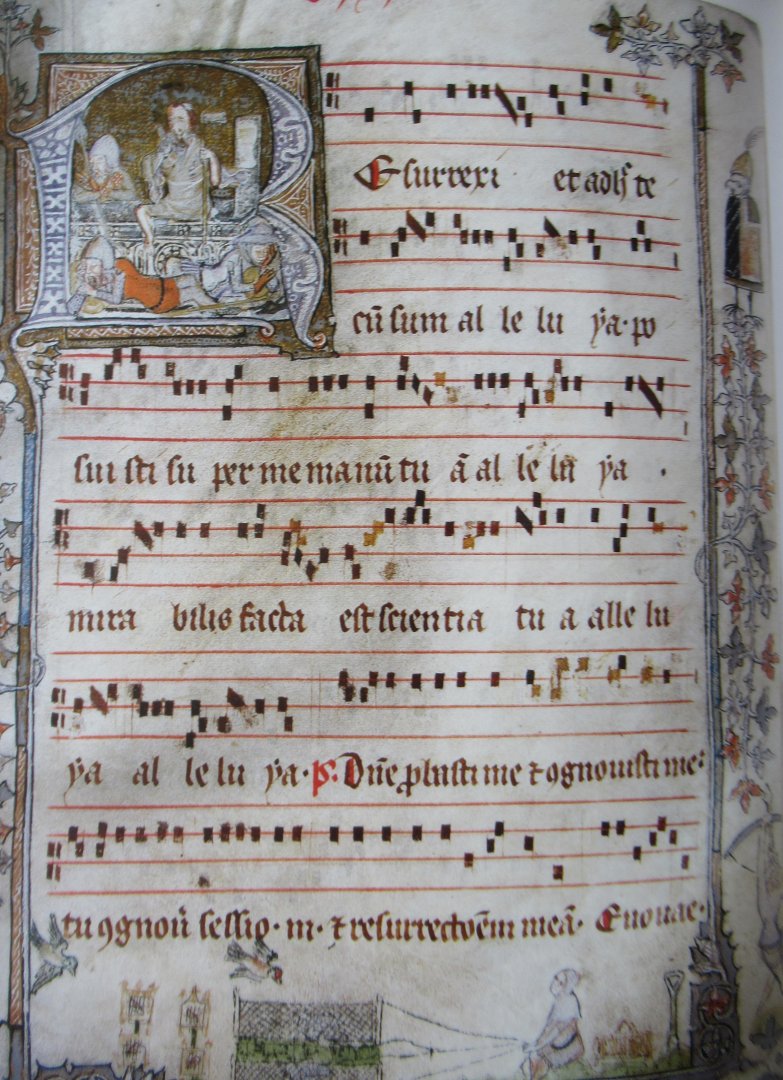 Resurrexi et adhˢ te
cū sum al le lu ẏa · po
sui sti su per me manū tu ā al le lu ẏa ·
mira bilis facta est scientia tu a alle lu
ẏa al le lu ẏa · ps. Dn̄e ꝓbasti me ⁊ ꝯgnouisti me ·
tu ꝯgnoū sessio · m · ⁊ resurrectōēm meā · Euouae ·